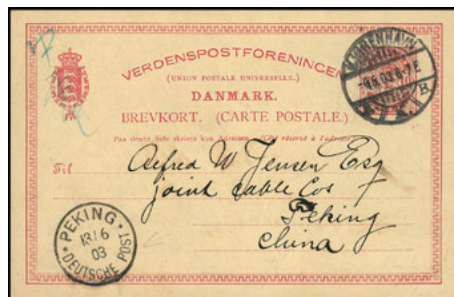 VERDENSPOSTFORENINGEN
(UNION POSTALE UNIVERSELLE.)
DANMARK.
BREVKORT. (CARTE POSTALE.)
Paa denne Side skrives kun Adressen. (Côté réservé à l'adresse)
Til
Alfred W Jensen Esq
joint cable Cos
Peking
China
KJØBENHAVN
B
PEKING
13/6
03
DEUTSCHE POST